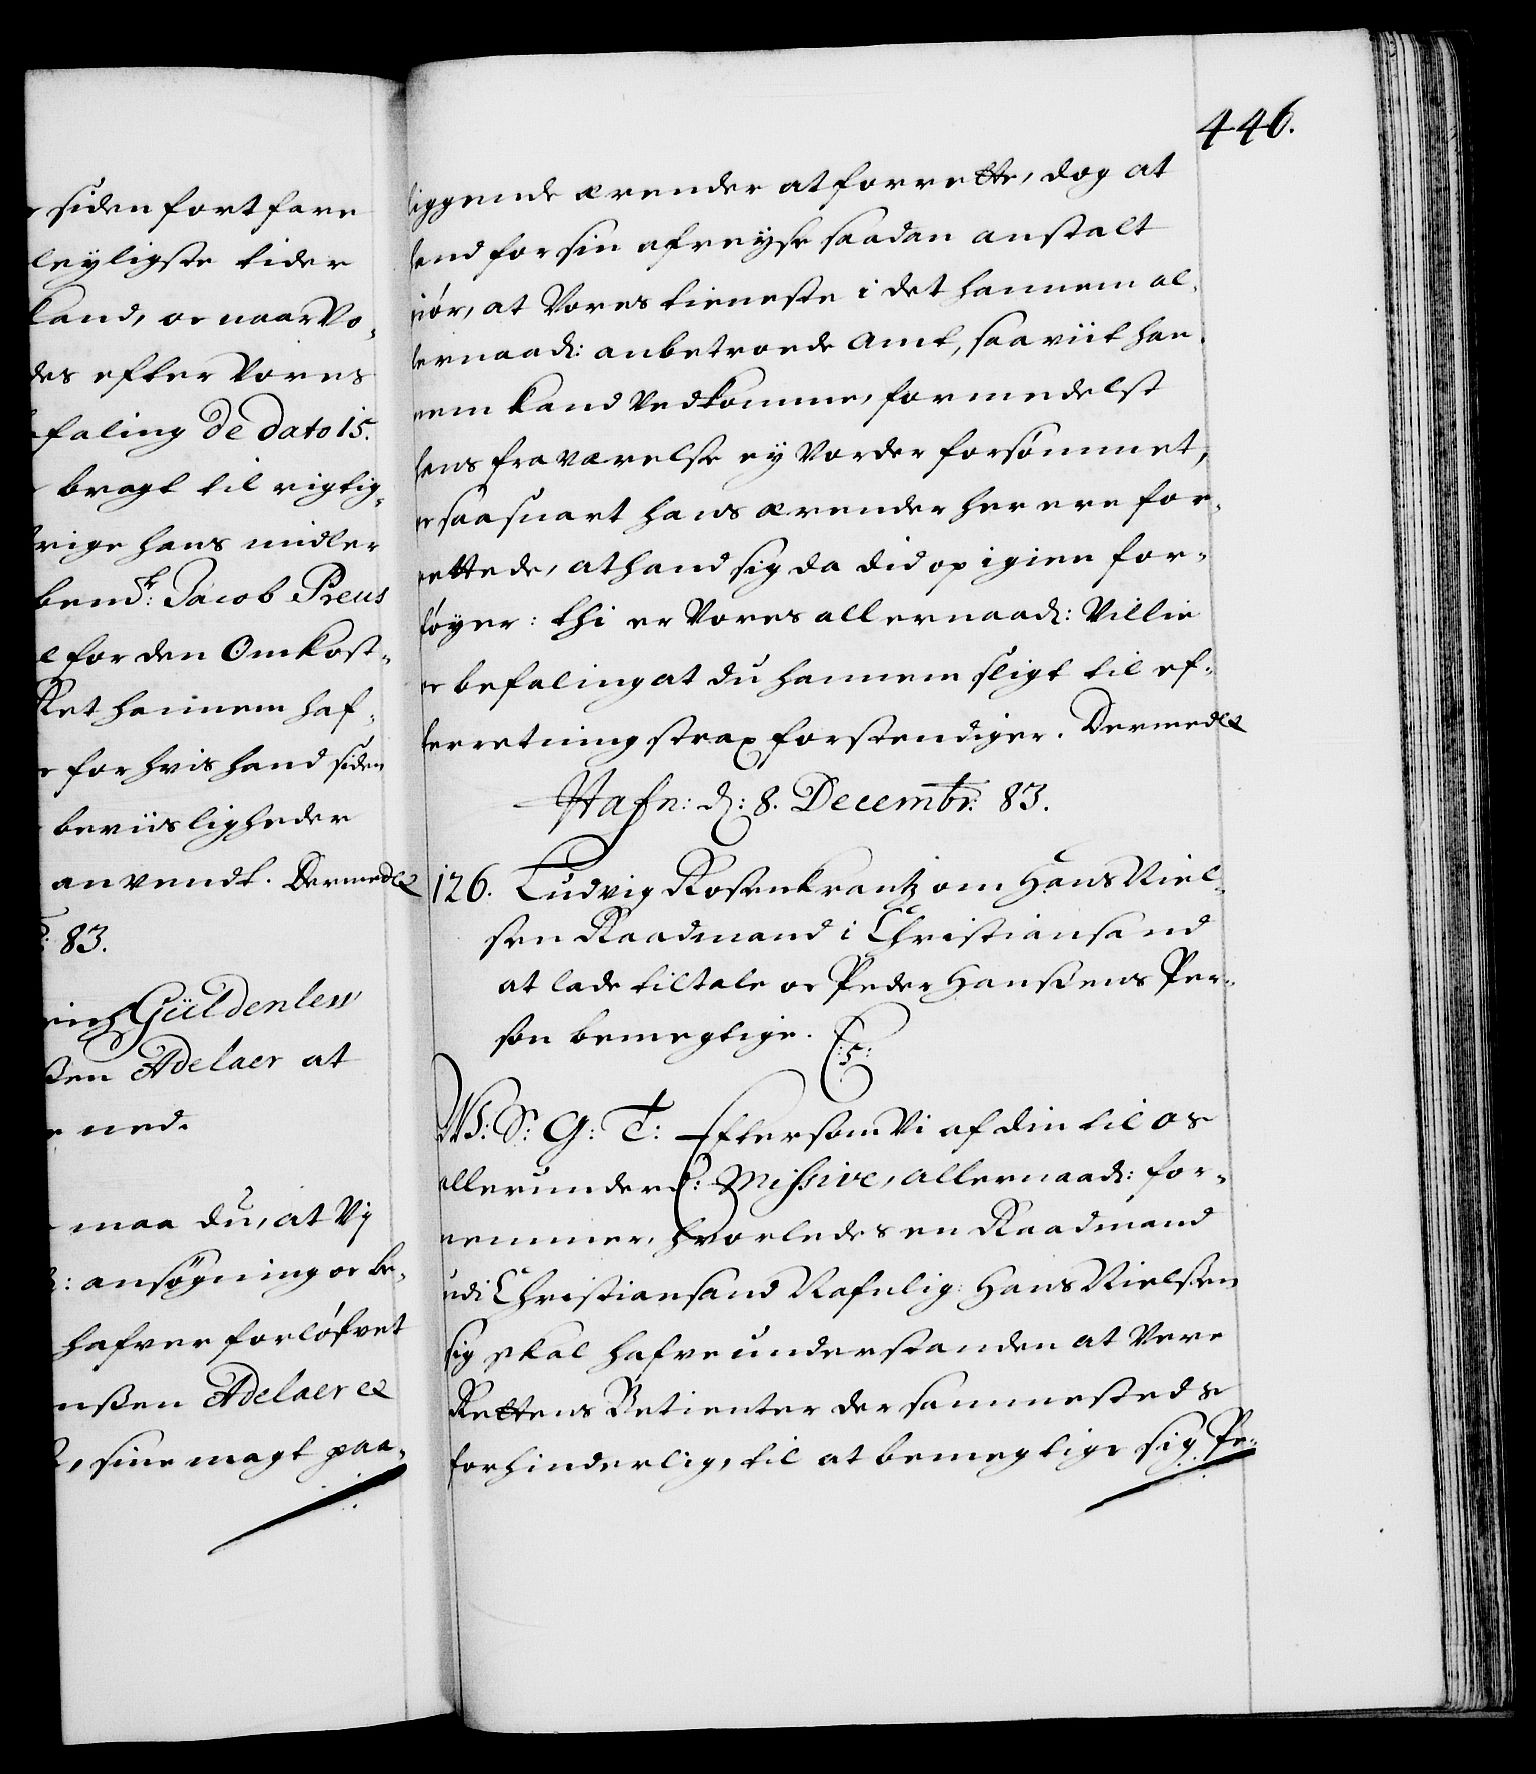 siden fortfare
leyligste tider
land, oc naar Vo-
des efter Vores
faling de dato 15.
bragt til rigtig-
rige hans midler
bem.t: Jacob Preus
e for den Omkost-
ket hannem haf-
for hvis hand siden
beviisligheder
anvendt. Dermed etc
: 83.
rich Güldenlew
ßen Adelaer at
ned.
maa du, at Vy
: ansøgning oc be-
hafver forløfvet
nßen Adelaer etc
, sine magt paa-
446.
liggende ærender at forrette, dog at
hand for sin afreyse saadan anstalt
giör, at Vores tieneste i det hannem al-
lernaad: anbetroede Amt, saa viit han-
nem kand Vedkomme, formedelst
hans fraværelse ey Vorder forsömmet,
oc saa snart hans ærender her ere for-
rettede, at hand sig da did op igien for-
föyer: thi er Vores allernaad: Villie
oc befaling at du hannem sligt til ef-
terretning strax forstendiger. Dermed etc
Hafn: d: 8. Decembr: 83.
126. Ludvig Rosenkrantz om Hans Niel-
sen Raadmand i Christiansand
at lade tiltale oc Peder Hanßens Per-
son bemegtige.
C:5:
W: S: G: T: Eftersom Vi af din til os
allerunderd: Missive, allernaad: for-
nemmer, hvorledes en Raadmand
udi Christiansand Nafnlig: Hans Nielßen
sig skal hafve understanden at Vere
Rettens Betienter der sammesteds
forhinderlig, til at bemegtige sig Pe-